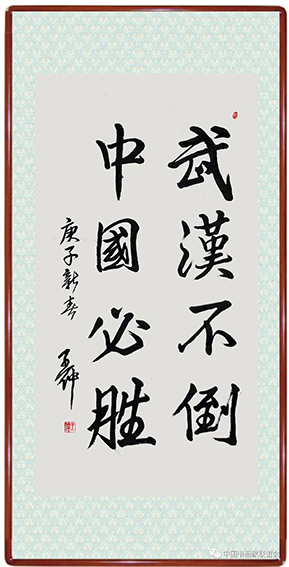 武漢不倒
中國必胜
庚子新春
中国书画家联谊会